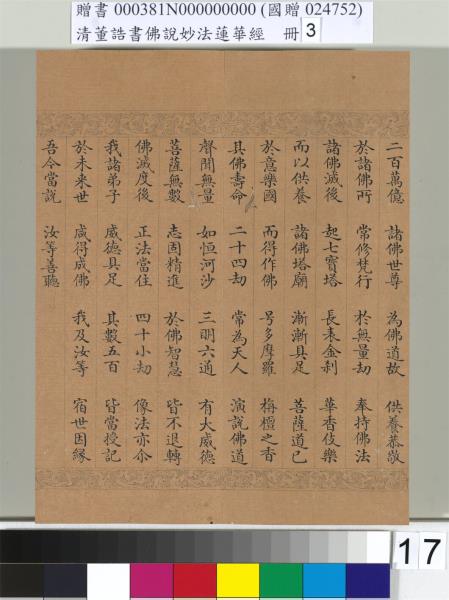 贈書 000381N000000000 (國贈 024752)
清董誥書佛說妙法蓮華經 冊 3
二百萬億 諸佛世尊 為佛道故 供養恭敬
於諸佛所 常修梵行 於無量劫 奉持佛法
諸佛滅後 起七寶塔 長表金剎 華香伎樂
而以供養 諸佛塔廟 漸漸具足 菩薩道已
於意樂國 而得作佛 号多摩羅 栴檀之香
其佛壽命 二十四劫 常為天人 演說佛道
聲聞無量 如恒河沙 三明六通 有大威德
菩薩無數 志固精進 於佛智慧 皆不退轉
佛滅度後 正法當住 四十小劫 像法亦尒
我諸弟子 威德具足 其數五百 皆當授記
於未来世 咸得成佛 我及汝等 宿世因緣
吾今當說 汝等善聽
17